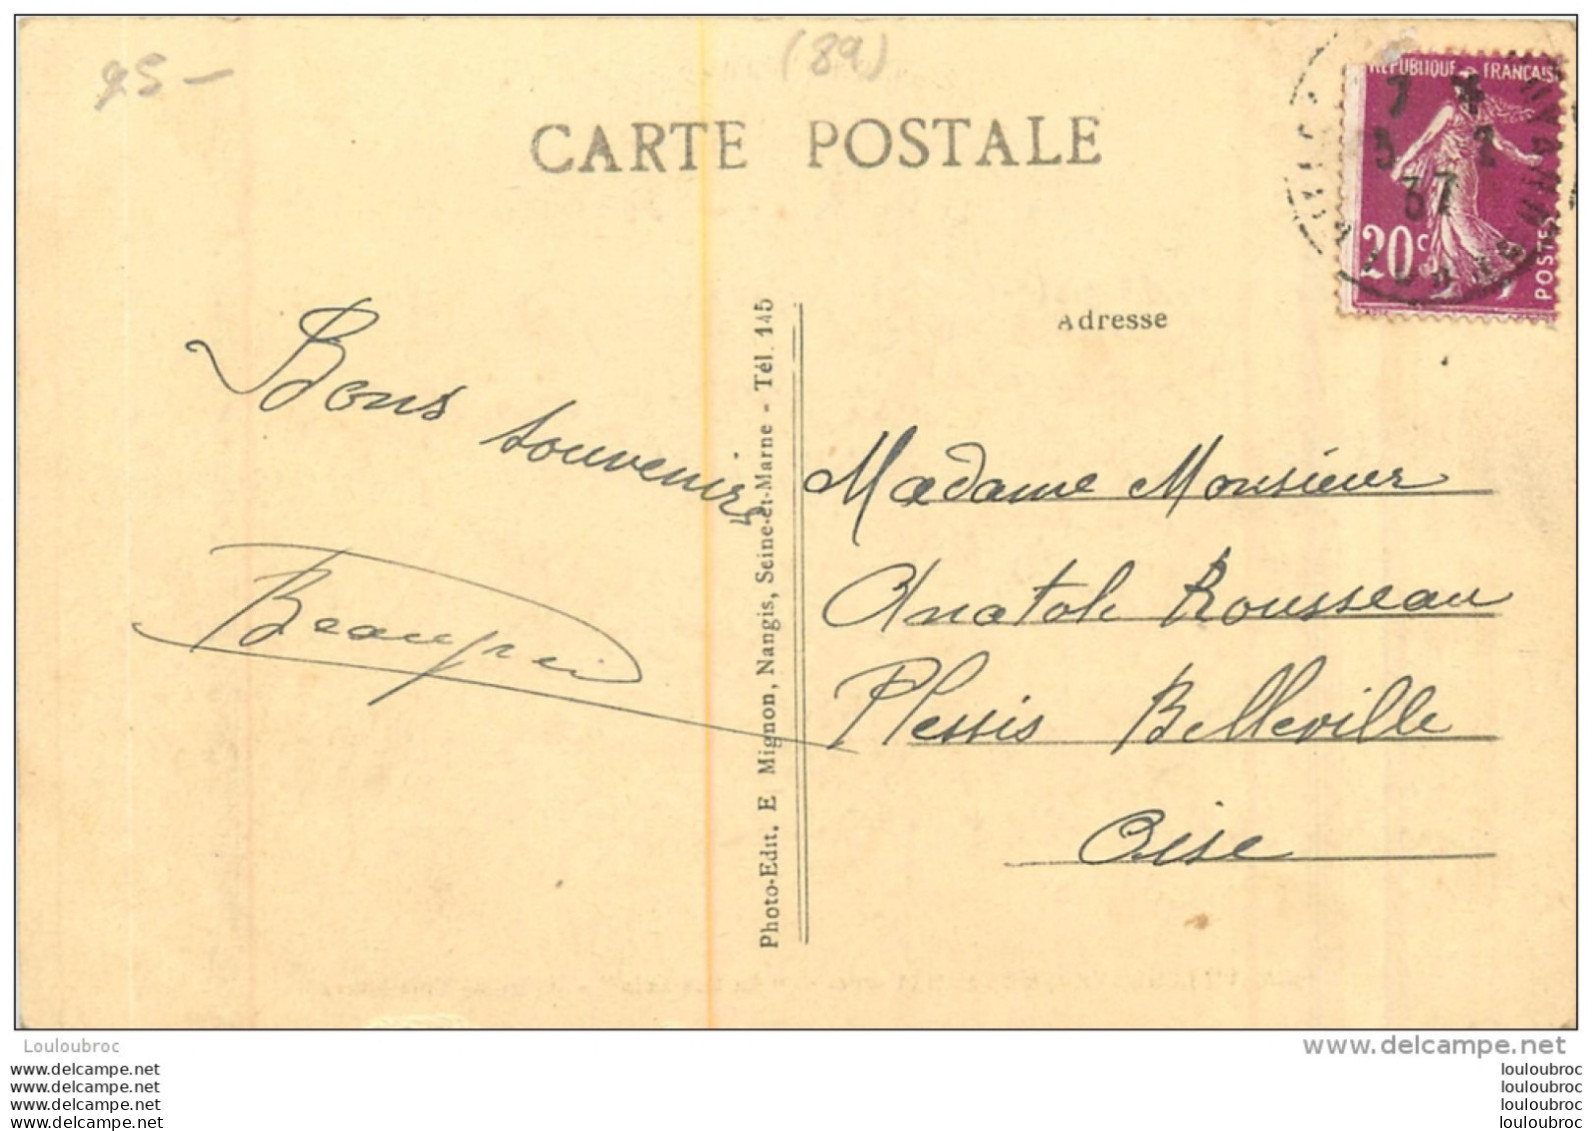 95 -
(89)
CARTE POSTALE
REPUBLIQUE FRANCAISE
37
20c
POSTES
Adresse
Bons souvenirs
Madame Monsieur
Anatole Rousseau
Plessis Belleville
Oise
Photo-Edit. E Mignon, Nangis, Seine-et-Marne - Tél. 145
Louloubroc
www.delcampe.net
www.delcampe.net
www.delcampe.net
www.delcampe.net
www.delcampe.net
louloubroc
louloubroc
louloubroc
louloubroc